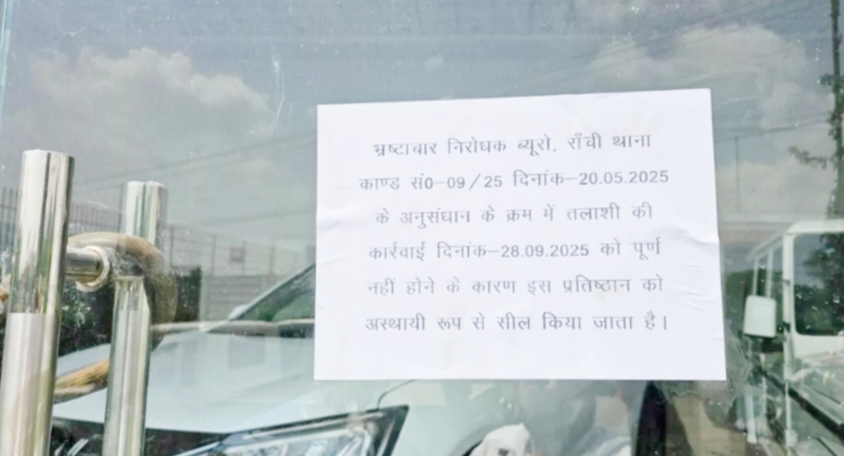 भ्रष्टाचार निरोधक ब्यूरो, राँची थाना
काण्ड सं0-09/25 दिनांक-20.05.2025
के अनुसंधान के क्रम में तलाशी की
कार्रवाई दिनांक-28.09.2025 को पूर्ण
नहीं होने के कारण इस प्रतिष्ठान को
अस्थायी रूप से सील किया जाता है।